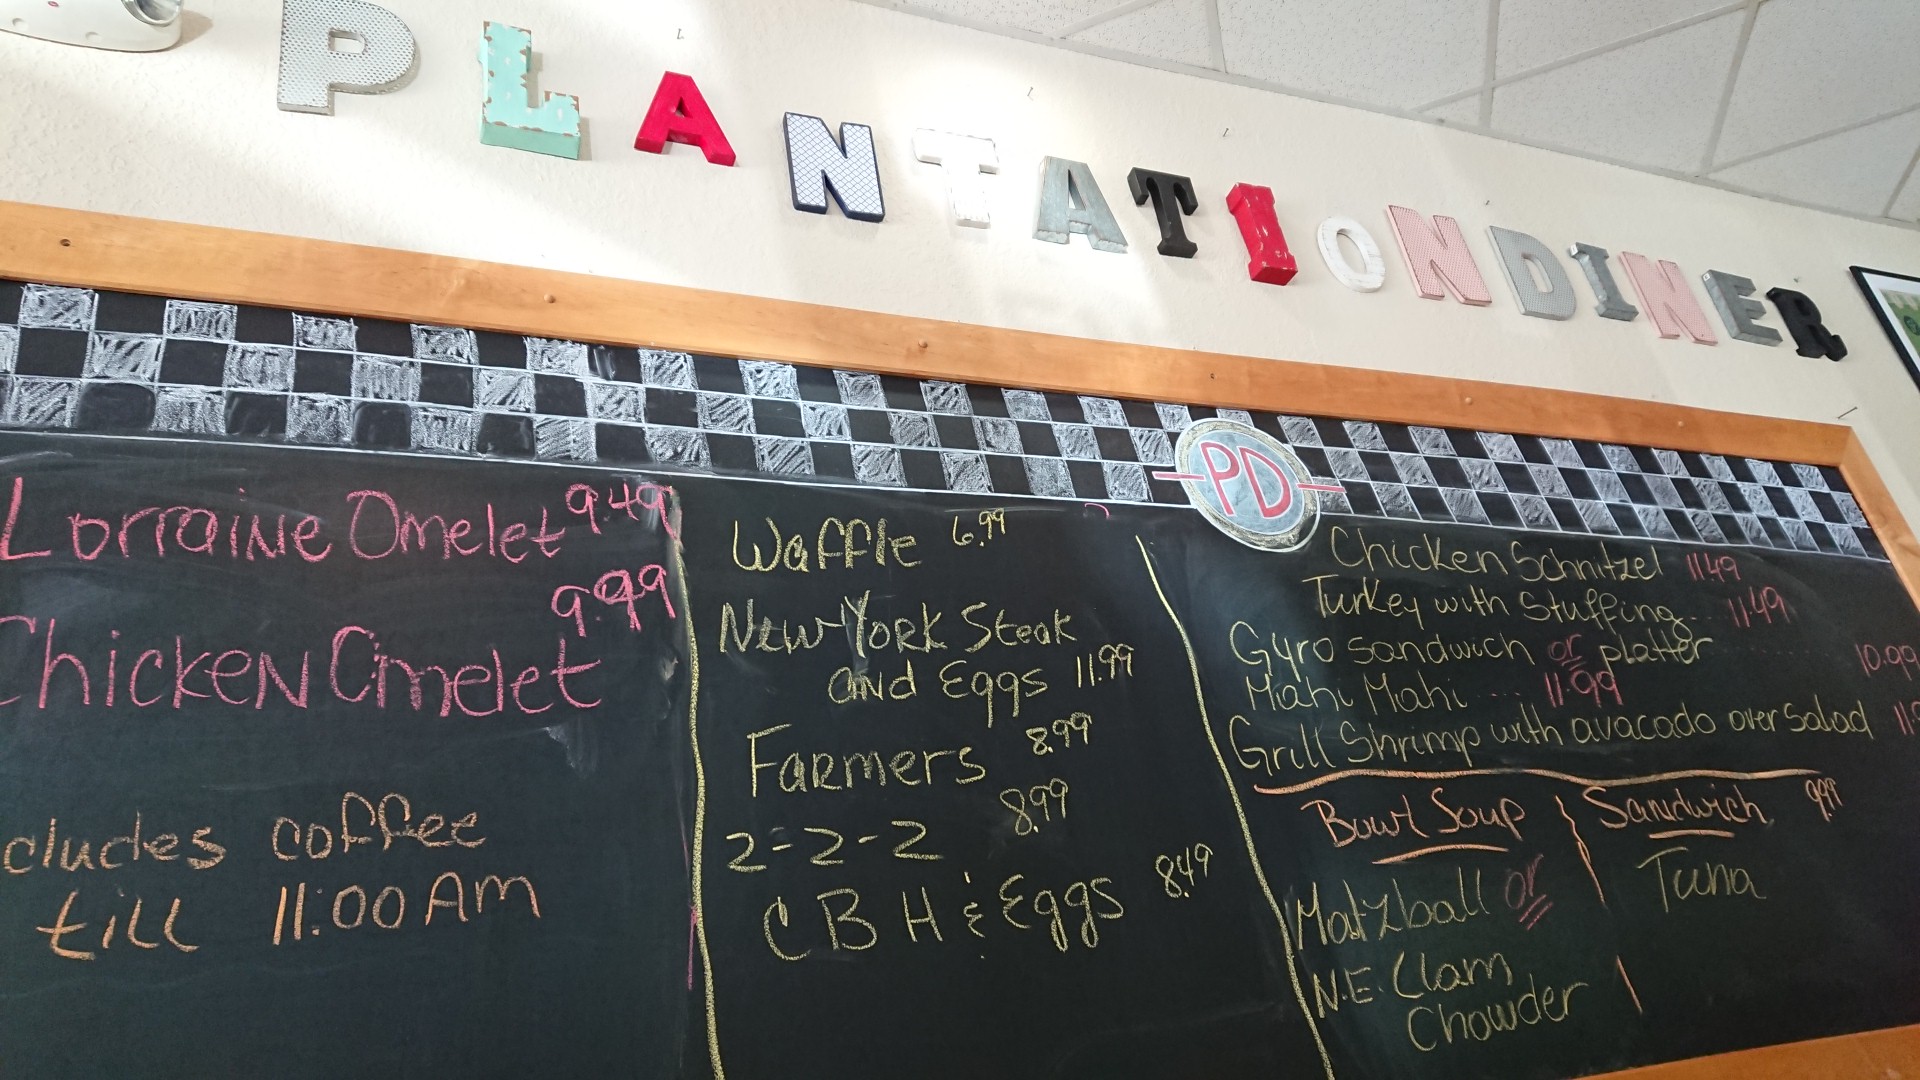 PLANTATION DINER
PD
Lorraine Omelet 9.49
9.99
Chicken Omelet
cludes coffee
till 11:00 AM
Waffle 6.99
New York Steak
and Eggs 11.99
Farmers 8.99
2-2-2 8.99
C B H & Eggs 8.49
Chicken Schnitzel 11.49
Turkey with Stuffing... 11.49
Gyro Sandwich or platter ........ 10.99
Mahi Mahi .... 11.99
Grill Shrimp with avacado over Salad
Bowl Soup
Matzball or
N.E. Clam
Chowder
Sandwich 9.99
Tuna